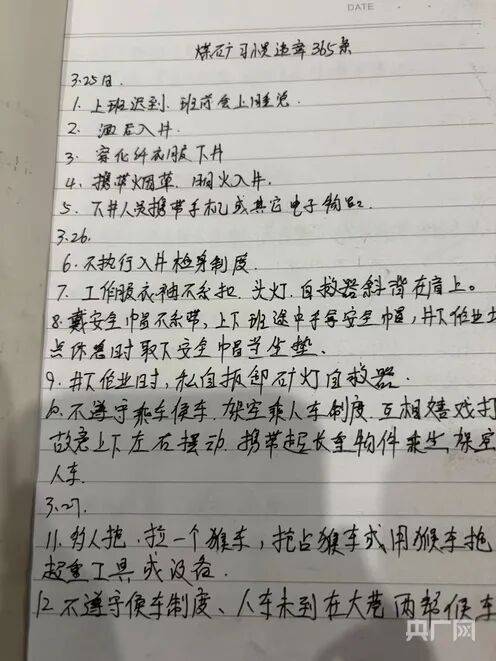 DATE
煤矿习惯违章365条
3.25日.
1. 上班迟到. 班前会上睡觉.
2. 酒后入井.
3. 穿化纤衣服下井
4. 携带烟草. 明火入井.
5. 下井人员携带手机或其它电子物品.
3.26.
6. 不执行入井检身制度.
7. 工作服衣袖不系扣. 头灯. 自救器斜背在肩上。
8. 戴安全帽不系带, 上下班途中手拿安全帽, 井下作业地
点休息时取下安全帽当坐垫.
9. 井下作业时, 私自拆卸矿灯自救器.
10. 不遵守乘车候车. 架空乘人车制度. 互相嬉戏打
故意上下左右摆动. 携带超长重物件乘坐架空
人车.
3.27.
11. 多人抱. 拉一个猴车, 抢占猴车或用猴车拖
超重工具或设备.
12. 不遵守候车制度、人车未到在大巷两帮候车
央广网
cnr.cn